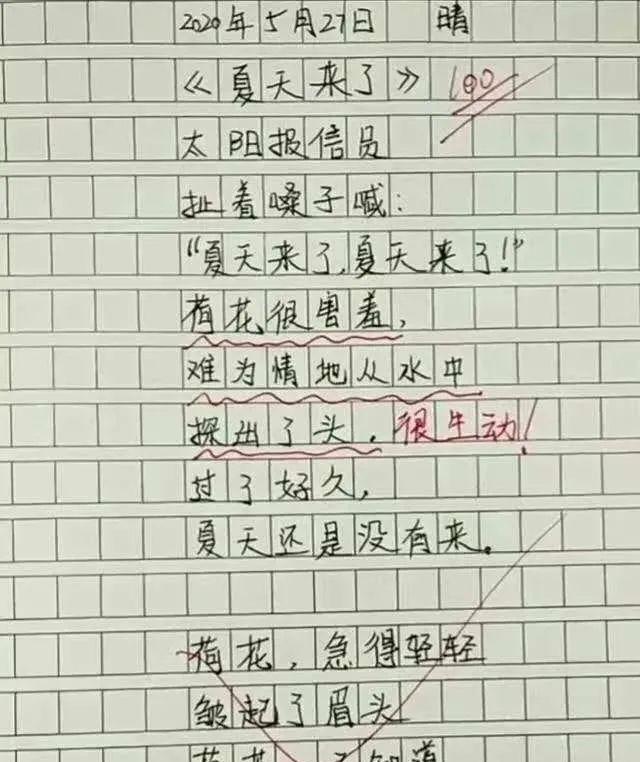 2020年5月27日 晴
《夏天来了》 100
太阳报信员
扯着嗓子喊:
“夏天来了,夏天来了!”
荷花很害羞,
难为情地从水中
探出了头。很生动!
过了好久,
夏天还是没有来。
荷花,急得轻轻
皱起了眉头